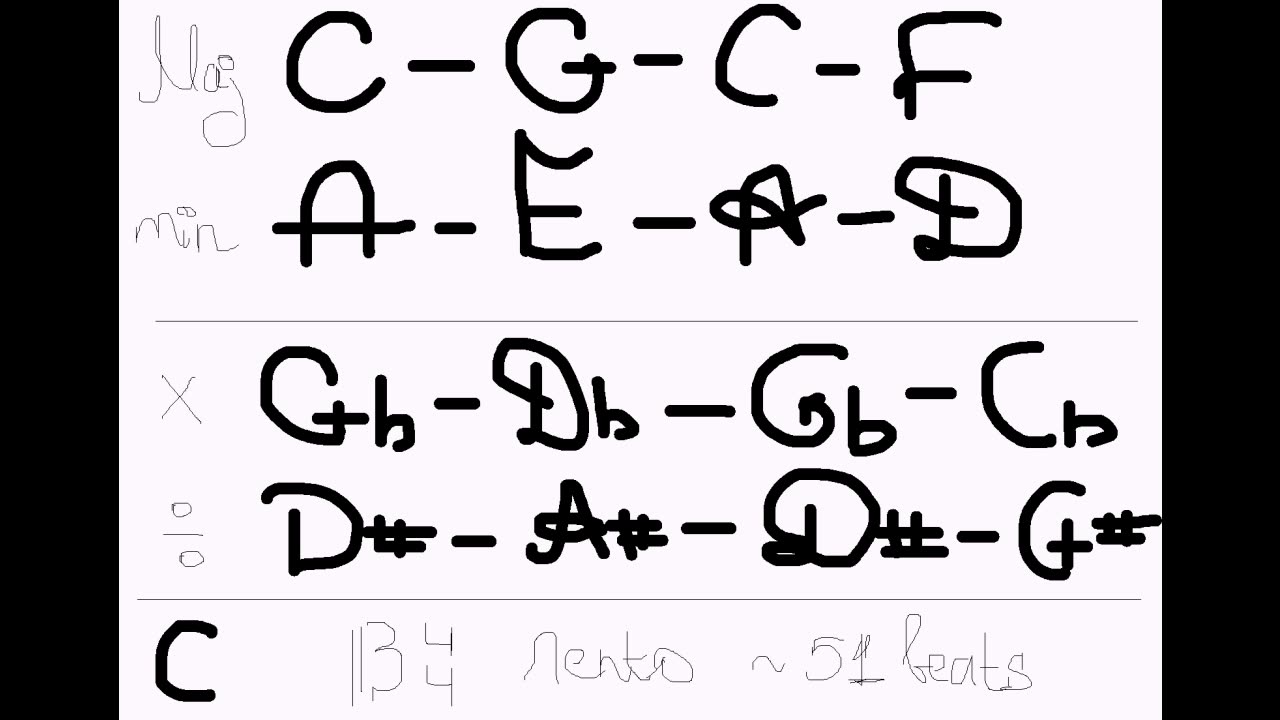 Maj C - G - C - F
min A - E - A - D
× Gb - Db - Gb - Cb
÷ D# - A# - D# - G#
C 44 ~51 beats